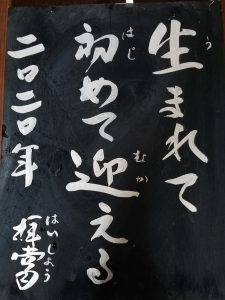 う
生まれて
はじ むか
初めて迎える
二〇二〇年
はいしょう